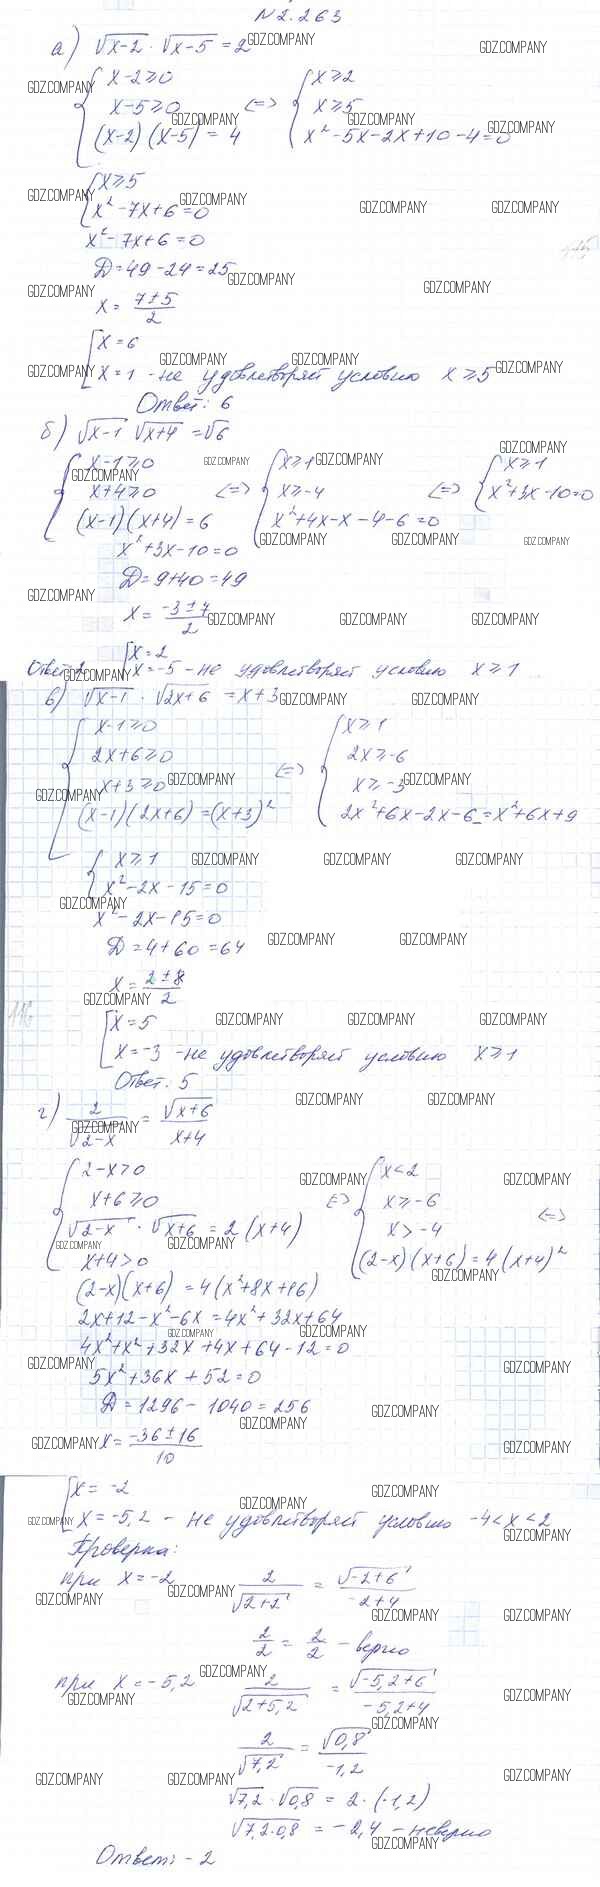 N2.263
а) √x-2 · √x-5 = 2
{ x-2≥0
x-5≥0
(x-2)(x-5) = 4
<=> { x≥2
x≥5
x²-5x-2x+10-4=0
{ x≥5
x²-7x+6=0
x²-7x+6=0
D=49-24=25
x= (7±5)/2
[ x=6
x=1 - не удовлетворяет условию x≥5
Ответ: 6
б) √x-1 √x+4 = √6
{ x-1≥0
x+4≥0
(x-1)(x+4)=6
<=> { x≥1
x≥-4
x²+4x-x-4-6=0
<=> { x≥1
x²+3x-10=0
x²+3x-10=0
D=9+40=49
x= (-3±7)/2
[ x=2
x=-5 - не удовлетворяет условию x≥1
Ответ: 2
в) √x-1 · √2x+6 = x+3
{ x-1≥0
2x+6≥0
x+3≥0
(x-1)(2x+6)=(x+3)²
<=> { x≥1
2x≥-6
x≥-3
2x²+6x-2x-6=x²+6x+9
{ x≥1
x²-2x-15=0
x²-2x-15=0
D=4+60=64
x= (2±8)/2
[ x=5
x=-3 - не удовлетворяет условию x≥1
Ответ: 5
г) 2/√2-x = √x+6/x+4
{ 2-x>0
x+6≥0
√2-x · √x+6 = 2(x+4)
x+4>0
<=> { x<2
x≥-6
x>-4
(2-x)(x+6)=4(x+4)²
<=>
(2-x)(x+6)=4(x²+8x+16)
2x+12-x²-6x=4x²+32x+64
4x²+x²+32x+4x+64-12=0
5x²+36x+52=0
D=1296-1040=256
x= (-36±16)/10
[ x=-2
x=-5,2 - не удовлетворяет условию -4<x<2
Проверка:
при x=-2 2/√2+2 = √-2+6/-2+4
2/2 = 2/2 - верно
при x=-5,2 2/√2+5,2 = √-5,2+6/-5,2+4
2/√7,2 = √0,8/-1,2
√7,2 · √0,8 = 2·(-1,2)
√7,2·0,8 = -2,4 - неверно
Ответ: -2
GDZ.COMPANY